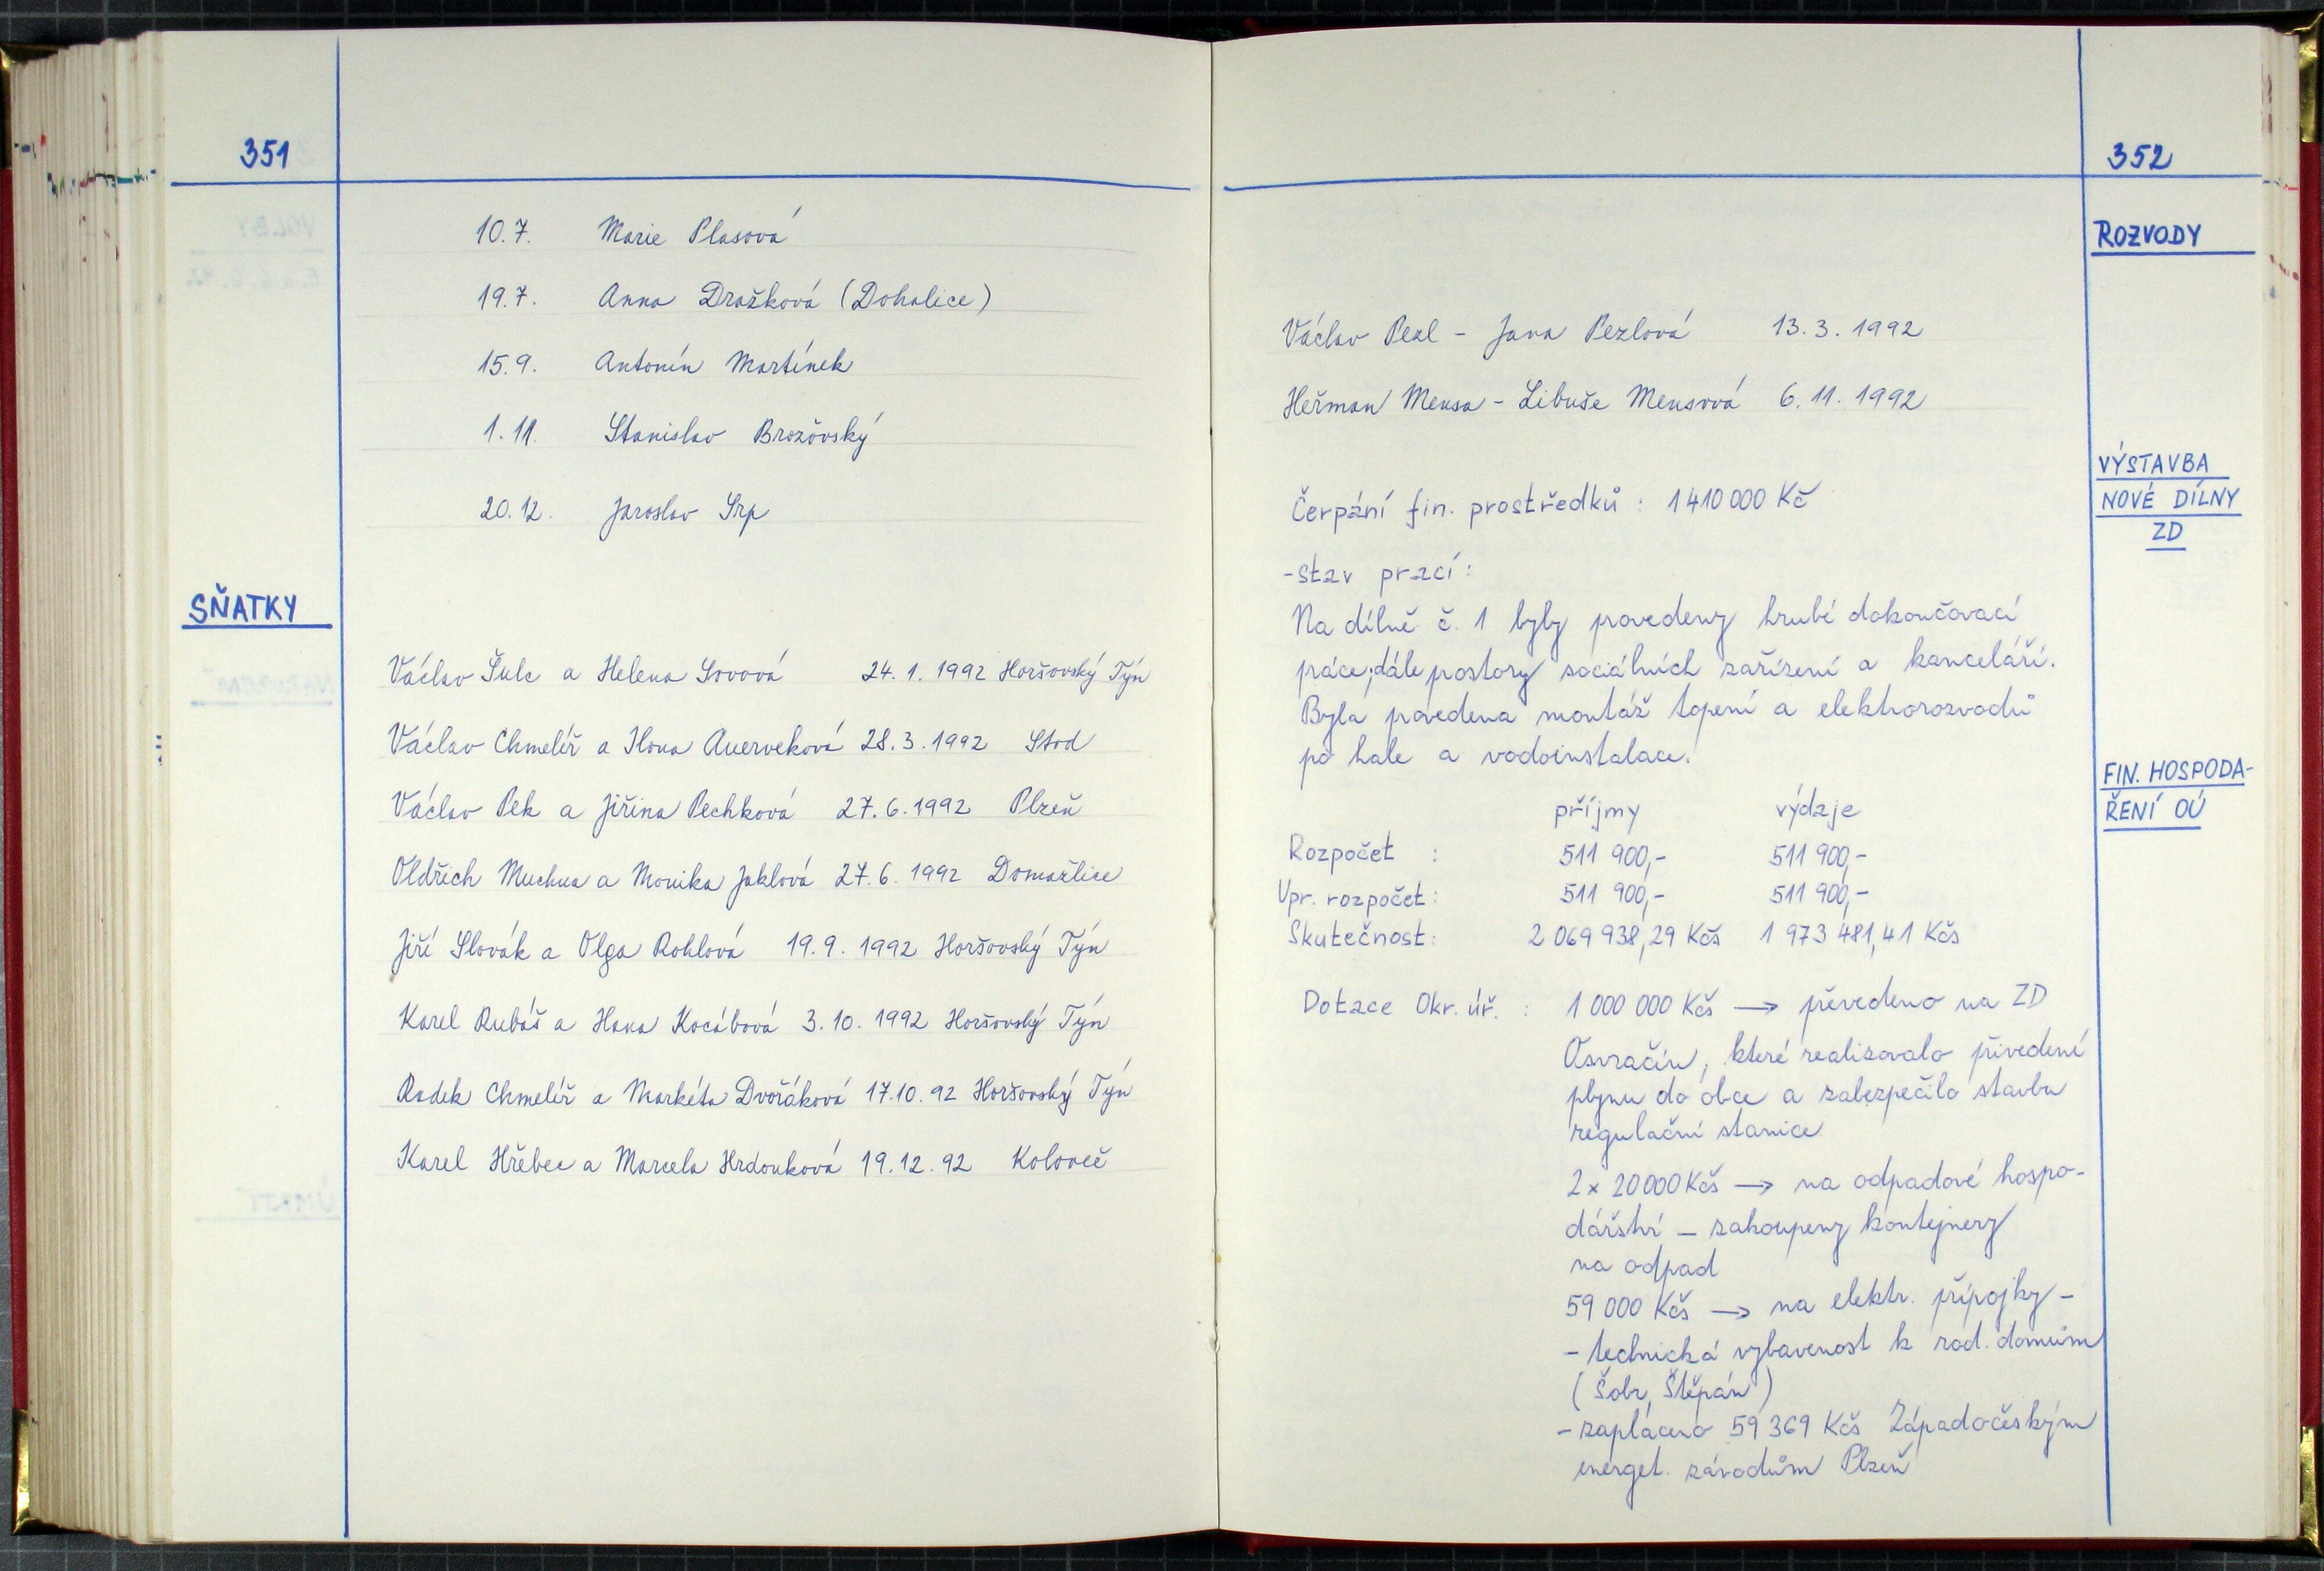 351
10.7. Marie Plasová
19.7. Anna Dražková (Dohalice)
15.9. Antonín Martínek
1.11. Stanislav Brozovský
20.12. Jaroslav Srp
SŇATKY
Václav Šulc a Helena Sovová 24.1.1992 Horšovský Týn
Václav Chmelíř a Ilona Auerveková 28.3.1992 Stod
Václav Pek a Jiřina Pechková 27.6.1992 Plzeň
Oldřich Muchna a Monika Jaklová 27.6.1992 Domažlice
Jiří Slovák a Olga Rohlová 19.9.1992 Horšovský Týn
Karel Rubáš a Hana Kocábová 3.10.1992 Horšovský Týn
Radek Chmelíř a Markéta Dvořáková 17.10.92 Horšovský Týn
Karel Hřebec a Marcela Hrdonková 19.12.92 Koloveč
352
ROZVODY
Václav Pezl - Jana Pezlová 13.3.1992
Heřman Mensa - Libuše Mensová 6.11.1992
VÝSTAVBA
NOVÉ DÍLNY
ZD
Čerpání fin. prostředků : 1 410 000 Kč
-stav prací:
Na dílně č. 1 byly provedeny hrubé dokončovací
práce; dále prostory sociálních zařízení a kanceláří.
Byla provedena montáž topení a elektrorozvodů
po hale a vodoinstalace.
FIN. HOSPODA-
ŘENÍ OÚ
příjmy výdaje
Rozpočet : 511 900,- 511 900,-
Upr. rozpočet: 511 900,- 511 900,-
Skutečnost: 2 069 938,29 Kčs 1 973 481,41 Kčs
Dotace Okr. úř. : 1 000 000 Kčs → převedeno na ZD
Osvračín, které realizovalo přivedení
plynu do obce a zabezpečilo stavbu
regulační stanice
2 x 20 000 Kčs → na odpadové hospo-
dářství - zakoupeny kontejnery
na odpad
59 000 Kčs → na elektr. přípojky -
- technická vybavenost k rod. domům
(Šobr, Štěpán)
- zaplaceno 59 369 Kčs Západočeským
energet. závodům Plzeň